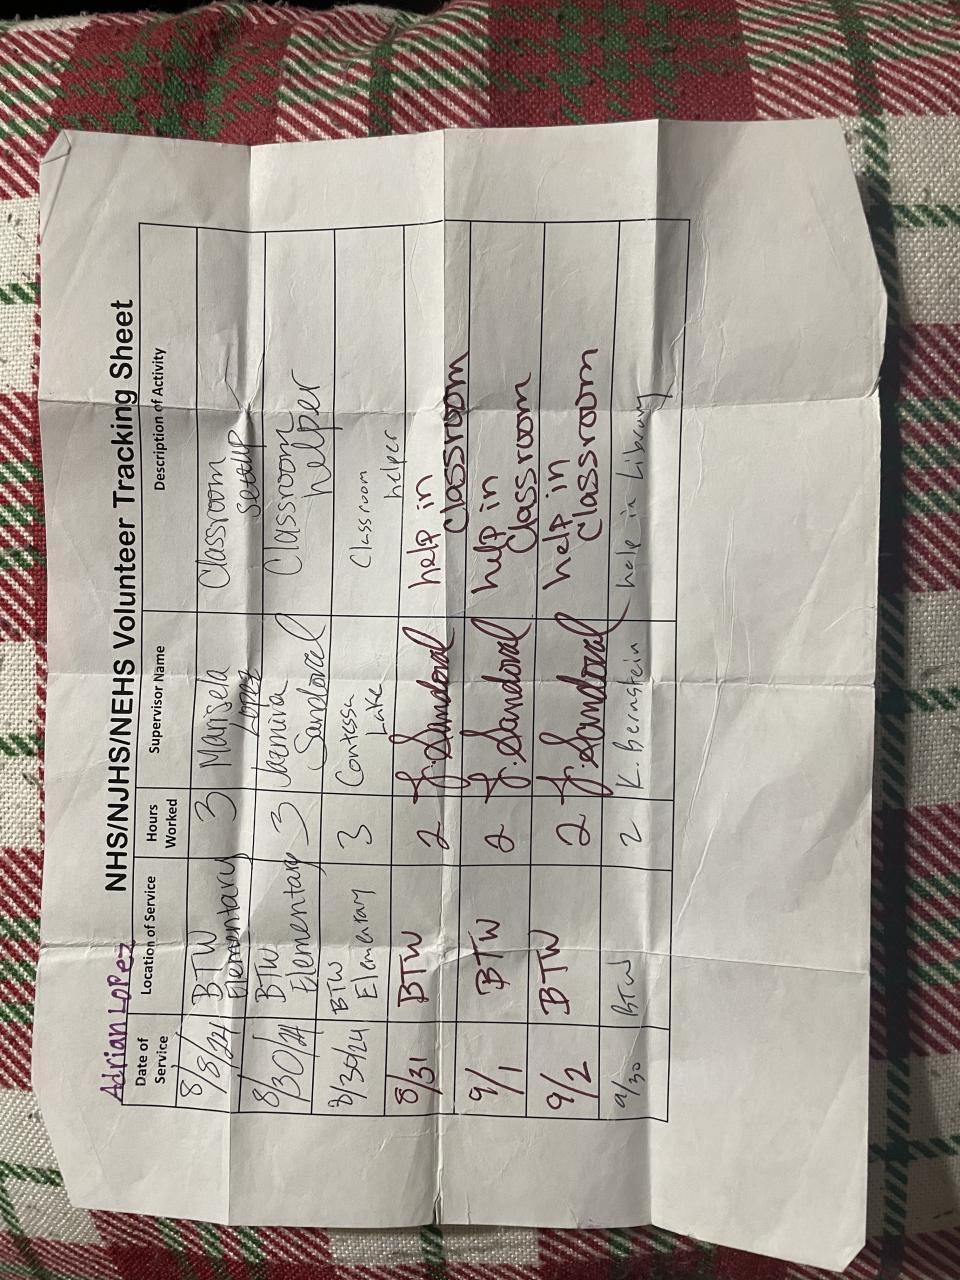 Adrian LoPez
NHS/NJHS/NEHS Volunteer Tracking Sheet
Date of Service Location of Service Hours Worked Supervisor Name Description of Activity
8/8/24 BTW Elementary 3 Marisela Lopez Classroom setup
8/30/24 BTW Elementary 3 Jamira Sandoval Classroom helper
8/30/24 BTW Elementary 3 Contessa Lake Classroom helper
8/31 BTW 2 J. Sandoval help in Classroom
9/1 BTW 2 J. Sandoval help in Classroom
9/2 BTW 2 J. Sandoval help in Classroom
9/30 BTW 2 K. bernstein help in Library